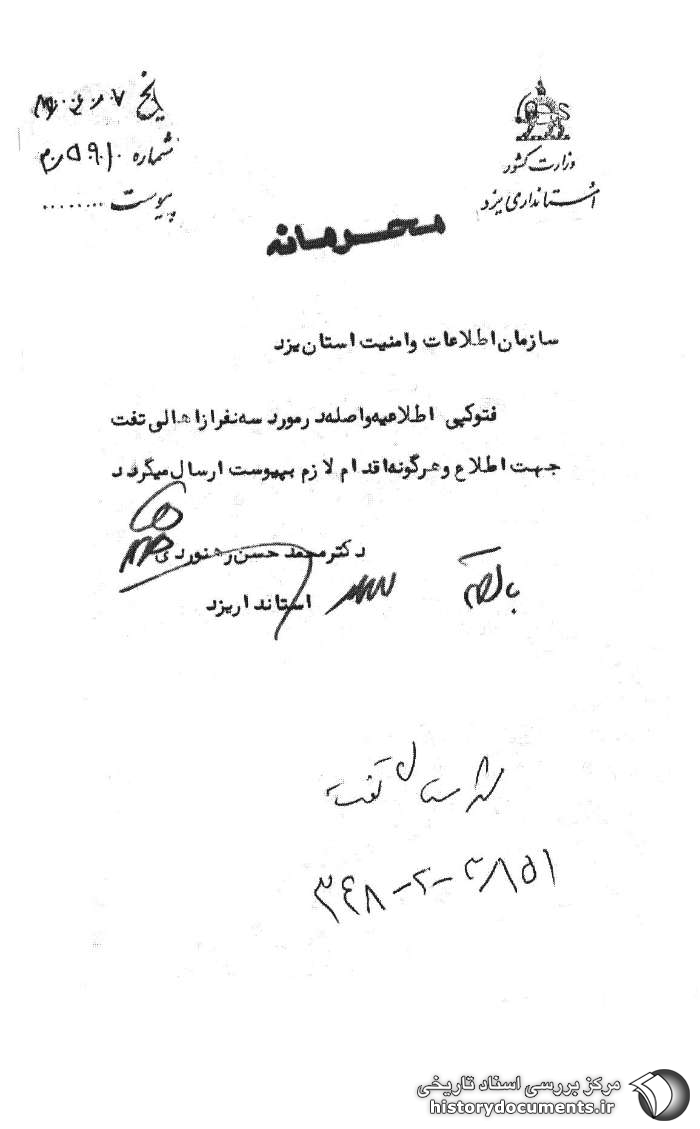 وزارت کشور
استانداری یزد
تاریخ
شماره
پیوست ........
محرمانه
سازمان اطلاعات وامنیت استان یزد
فتوکپی اطلاعیه واصله در مورد سه نفر از اهالی تفت
جهت اطلاع و هرگونه اقدام لازم بپیوست ارسال میگردد
دکتر محمد حسن رهنوردی
استاندار یزد
شهرستان تفت
مرکز بررسی اسناد تاریخی
historydocuments.ir